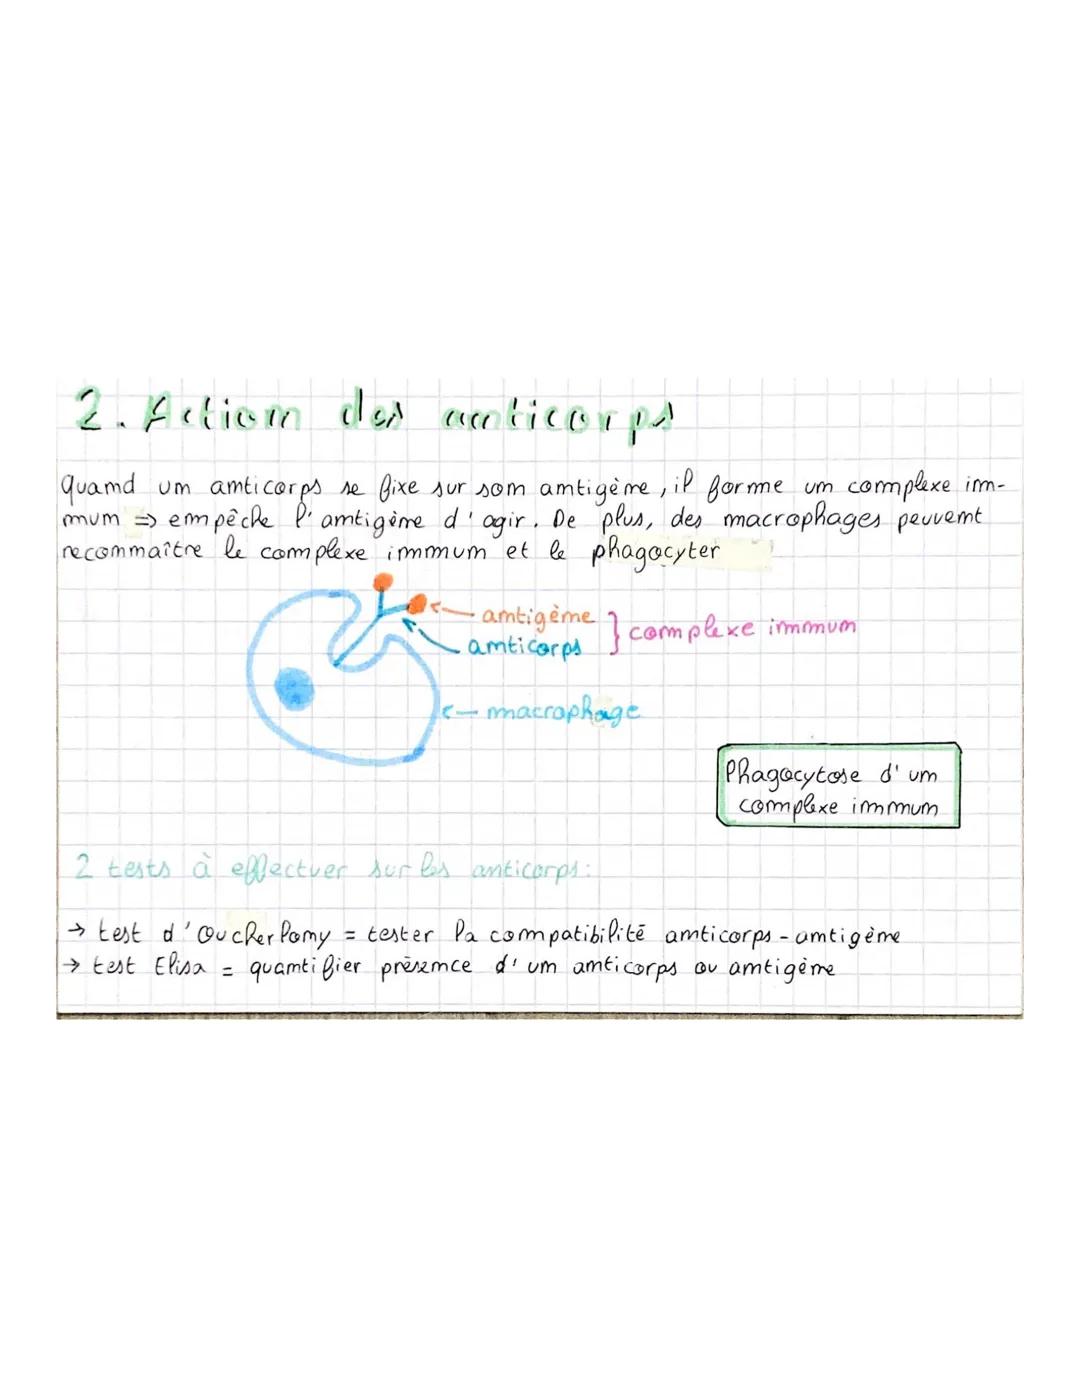 2. Action des anticorps
Quand un anticorps se fixe sur son antigène, il forme un complexe im-
mun => empêche l'antigène d'agir. De plus, des macrophages peuvent
reconnaître le complexe immun et le phagocyter
antigène
anticorps
} complexe immun
macrophage
Phagocytose d'un
complexe immun
2 tests à effectuer sur les anticorps:
→ test d'Oucherlony = tester la compatibilité anticorps-antigène
→ test Elisa = quantifier présence d'un anticorps ou antigène